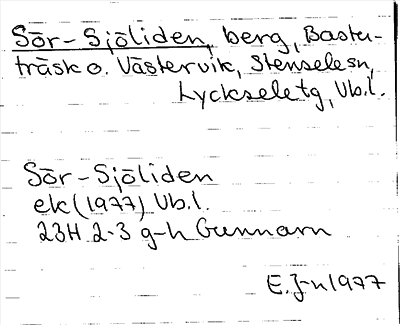 Sör-Sjöliden, berg, Bastu-
träsk o. Västervik, Stenselesn,
Lyckseletg, Vb.l.
Sör-Sjöliden
ek (1977) Vb.l.
23H 2-3 g-h Gunnarn
E. J-n 1977